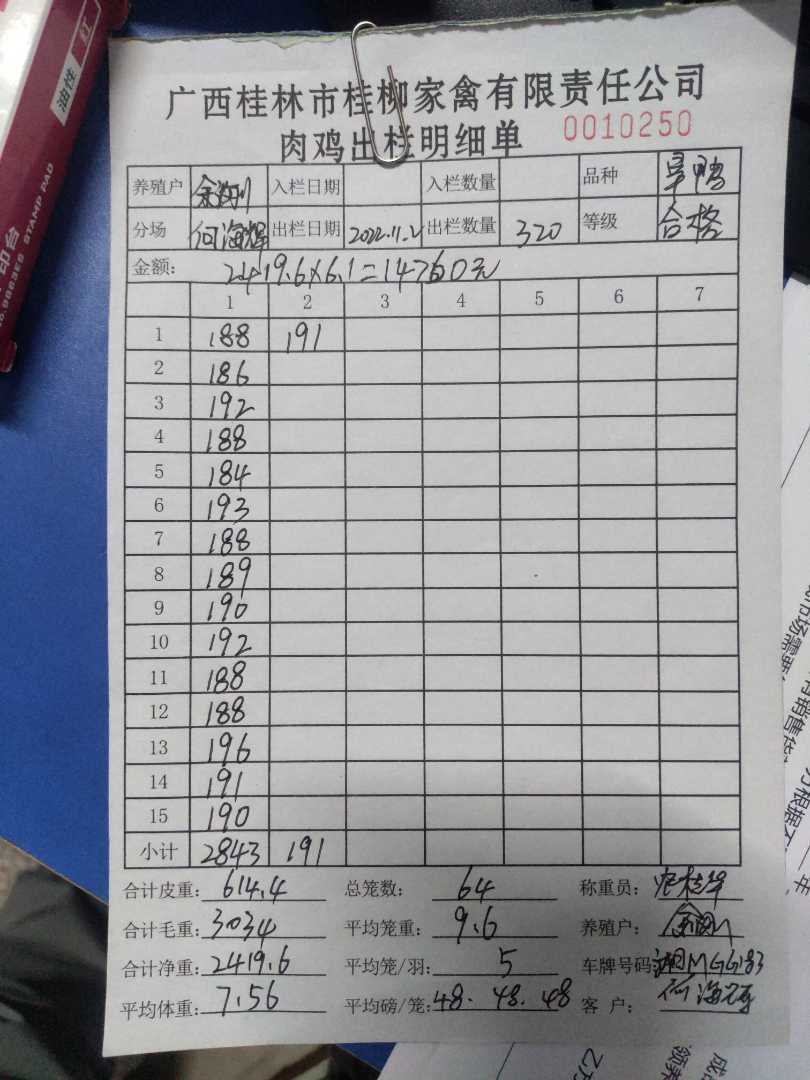 油性 红
印台 STAMP PAD
广西桂林市桂柳家禽有限责任公司
肉鸡出栏明细单 0010250
养殖户 入栏日期 入栏数量 品种 旱鸭
分场 何海辉 出栏日期 2022.11.2 出栏数量 320 等级 合格
金额: 2419.6×6.1=14760元
1 2 3 4 5 6 7
1 188 191
2 186
3 192
4 188
5 184
6 193
7 188
8 189
9 190
10 192
11 188
12 188
13 196
14 191
15 190
小计 2843 191
合计皮重: 614.4 总笼数: 64 称重员:
合计毛重: 3034 平均笼重: 9.6 养殖户:
合计净重: 2419.6 平均笼/羽: 5 车牌号码: 湘MGG183
平均体重: 7.56 平均磅/笼: 48.48.48 客户: